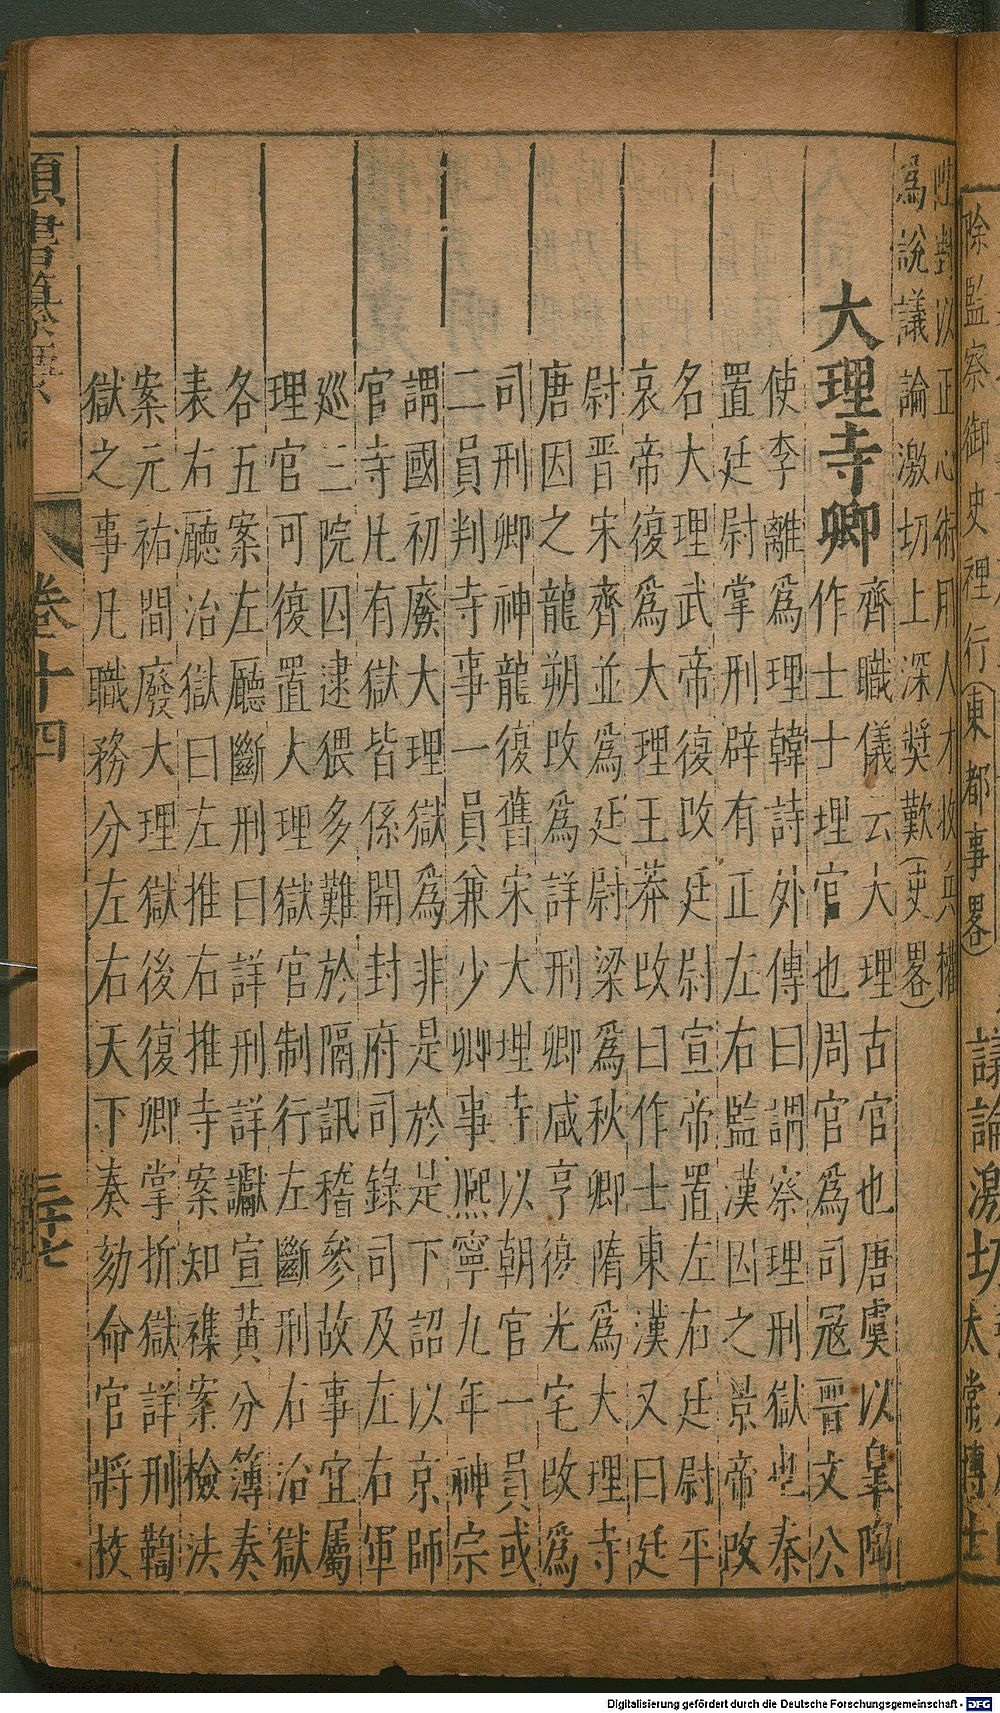 除監察御史裡行(東都事畧)　議論激切太常博士
對以正心術用人才收兵權
為說議論激切上深獎歎(史畧)
大理寺卿
齊職儀云大理古官也唐虞以皐陶
作士士理官也周官為司冦晉文公
使李離為理韓詩外傳曰謂察理刑獄也秦
置廷尉掌刑辟有正左右監漢因之景帝改
名大理武帝復改廷尉宣帝置左右廷尉平
哀帝復為大理王莽改曰作士東漢又曰廷
尉晋宋齊並為廷尉梁為秋卿隋為大理寺
唐因之龍朔改為詳刑卿咸亨復光宅改為
司刑卿神龍復舊宋大理寺以朝官一員或
二員判寺事一員兼少卿事熈寧九年神宗
謂國初廢大理獄為非是於是下詔以京師
官寺凡有獄皆係開封府司錄司及左右軍
廵三院囚逮猥多難於隔訊稽參故事宜屬
理官可復置大理獄官制行左斷刑右治獄
各五案左廳斷刑曰詳刑詳讞宣黄分簿奏
表右廳治獄曰左推右推寺案知襍案檢法
案元祐間廢大理獄後復卿掌折獄詳刑鞫
獄之事凡職務分左右天下奏劾命官將校
類書纂要
卷十四
三十七
Digitalisierung gefördert durch die Deutsche Forschungsgemeinschaft - DFG